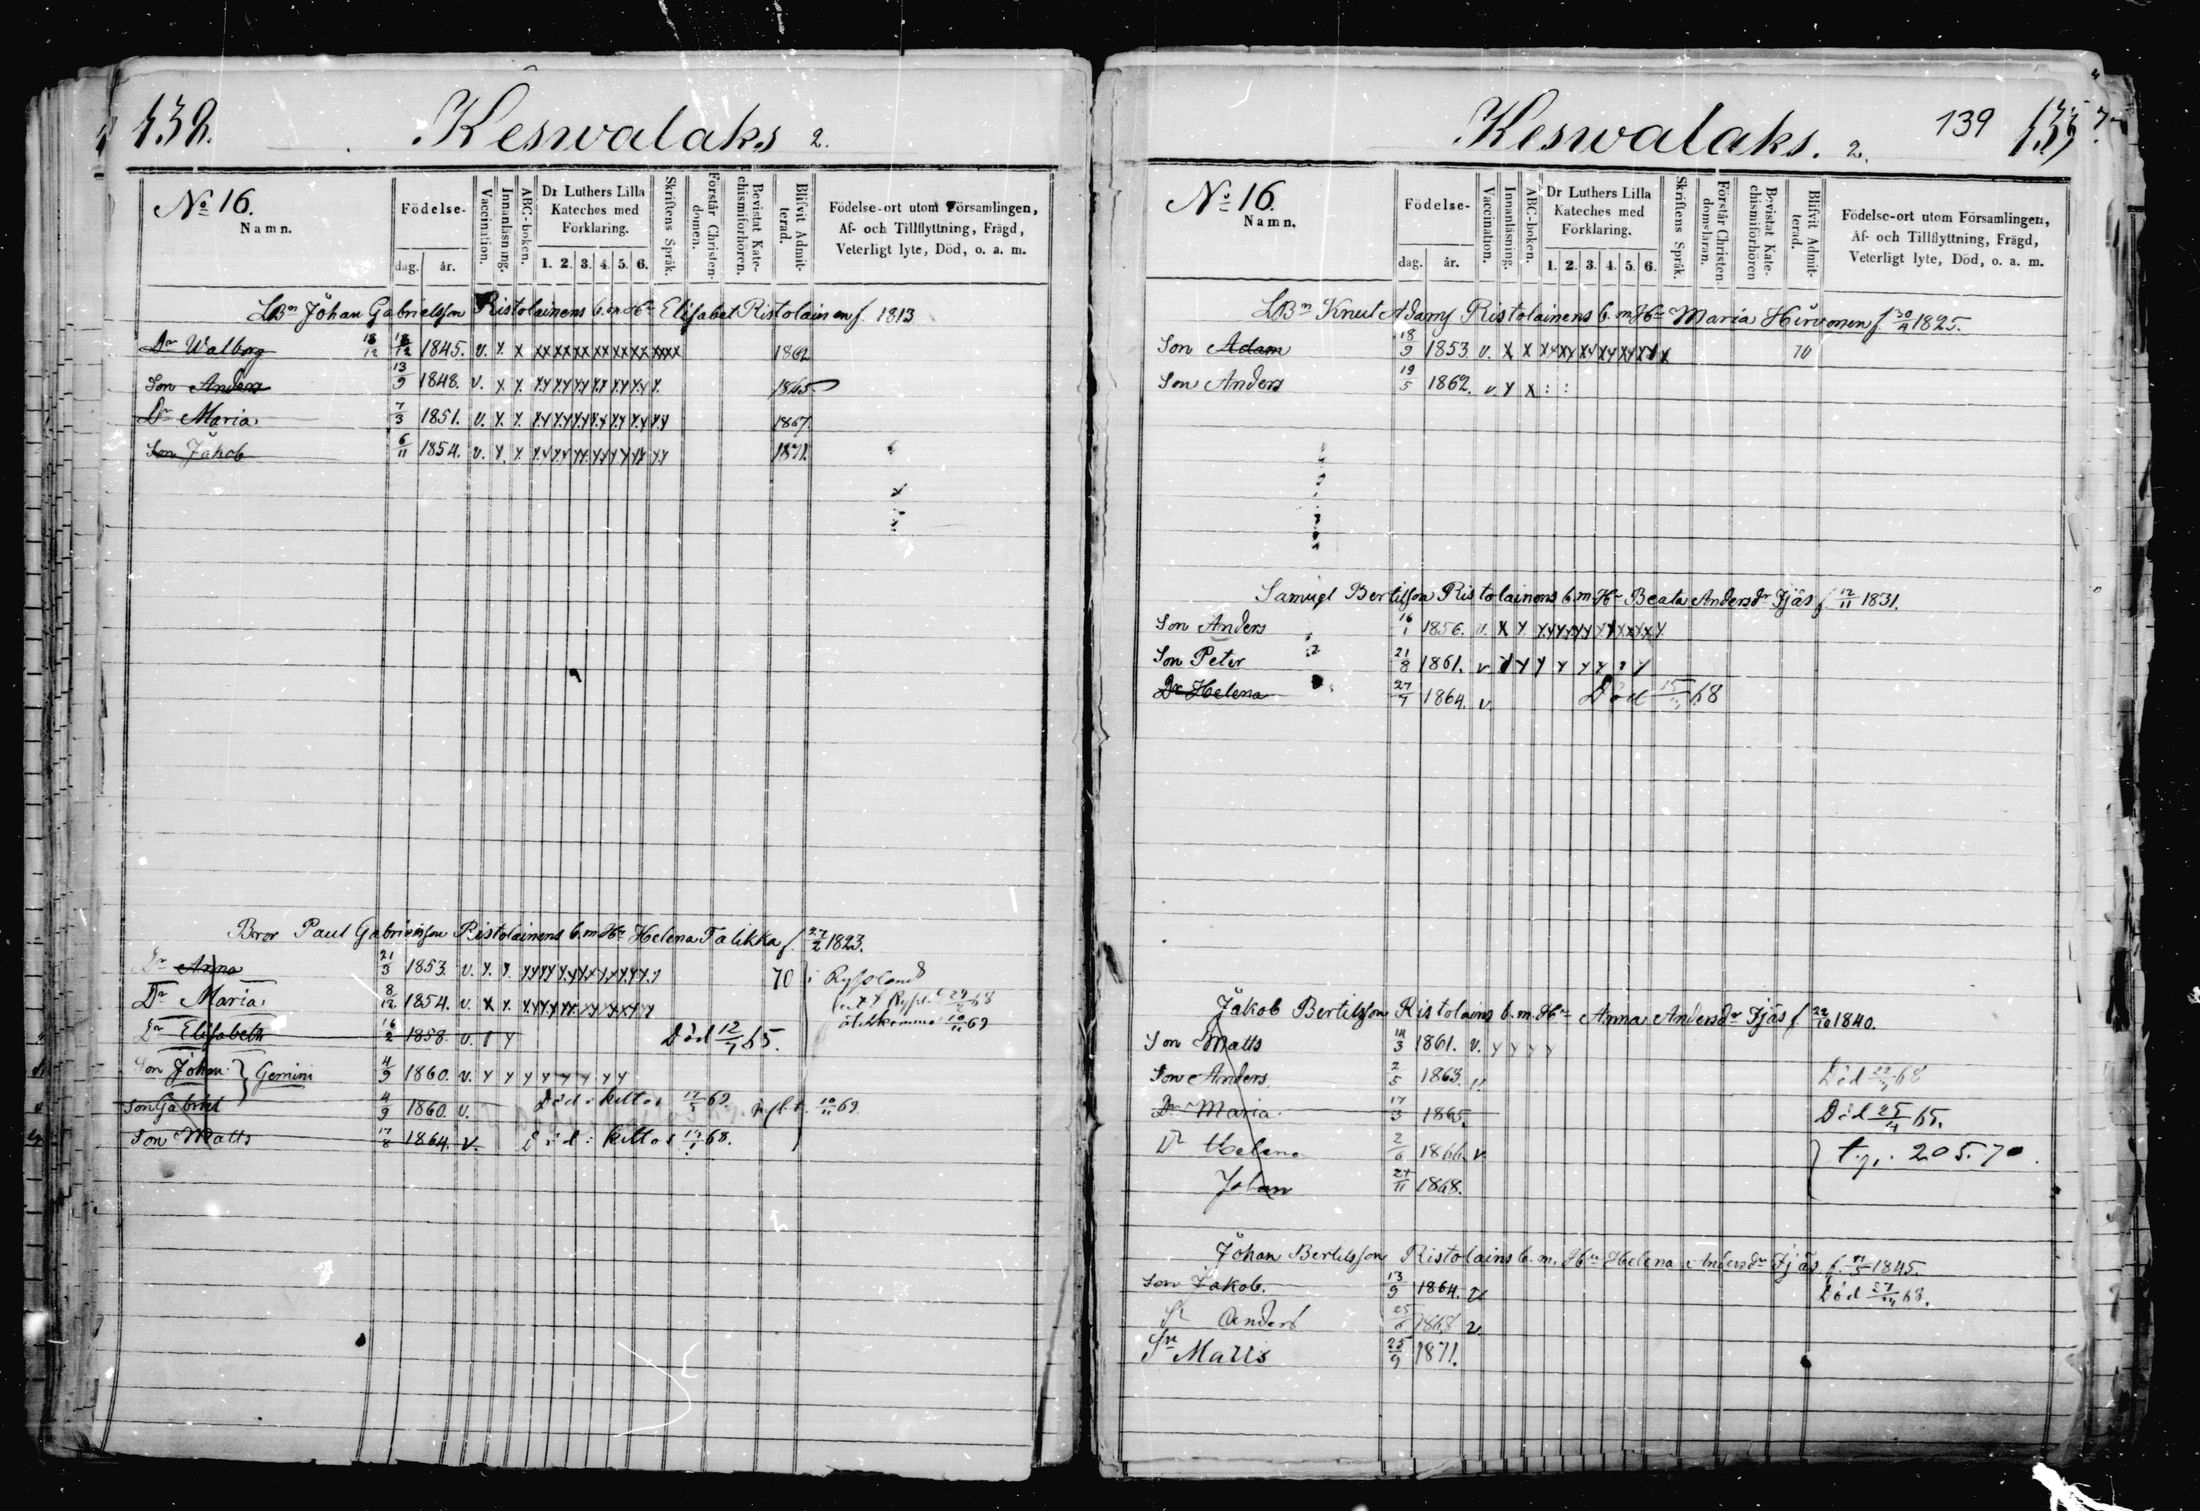 138.
Keswalaks 2.
No 16.
Namn.
Födelse-
dag.
år.
Vaccination.
Innanläsning.
ABC-boken.
Dr Luthers Lilla
Kateches med
Förklaring.
1. 2. 3. 4. 5. 6.
Skriftens Språk.
Förstår Christen-
domen.
Bevistat Kate-
chismiförhören.
Blifvit Admit-
terad.
Födelse-ort utom Församlingen,
Af- och Tillflyttning, Frägd,
Veterligt lyte, Död, o. a. m.
LBn Johan Gabrielsson Ristolainens b. m. Hu Elisabet Ristolainen f. 1813
Dr Walborg 18/12 18/12 1845. v. x x xx xx xx xx xx xx xx xx 1862
Son Anders 13/9 1848. v. x x xx xx xx xx xx xx x 1865
Dr Maria 7/3 1851. v. x x xx xx xx xx xx xx xx 1867.
Son Jakob 6/11 1854. v. x x xx xx xx xx xx xx xx 1871.
Bror Paul Gabrielsson Ristolainens b. m Hu Helena Talikka f. 27/2 1823.
Dr Anna 21/3 1853. v. x. x. xx xx xx xx xx xx x 70 i Ryssland
Dr Maria 8/12 1854. v. x x. xx xx xx xx xx xx 68
Dr Elisabeth 16/2 1858. v. Död 12/7 65. 10/11 69
Son Johan } Gemini 4/9 1860. v. y y y y y y y y
Son Gabriel 4/9 1860. v. Död i hettos 69. 10/11 69.
Son Matts 17/8 1864. v. Död i hettos 68.
139
Keswalaks. 2.
No 16.
Namn.
Födelse-
dag.
år.
Vaccination.
Innanläsning.
ABC-boken.
Dr Luthers Lilla
Kateches med
Förklaring.
1. 2. 3. 4. 5. 6.
Skriftens Språk.
Förstår Christen-
domsläran.
Bevistat Kate-
chismiförhören
Blifvit Admit-
terad.
Födelse-ort utom Församlingen,
Af- och Tillflyttning, Frägd,
Veterligt lyte, Död, o. a. m.
LBn Knut Adamss Ristolainens b. m Hu Maria Hirvonen f 30/4 1825.
Son Adam 18/9 1853. v. x x xx xx xx xx xx xx x 70
Son Anders 19/5 1862. v. x x : :
Samuel Bertilsson Ristolainens b. m. Hu Beata Andersdr Äjäs f 12/11 1831.
Son Anders 16/1 1856. v. x x xx xx xx xx xx xx x
Son Peter 21/8 1861. v y y y y y y y y
Dr Helena 27/7 1864. v. Död 68
Jakob Bertilsson Ristolains b. m. Hu Anna Andersdr Äjäs f 22/10 1840.
Son Matts 14/3 1861. v. y y y y
Son Anders. 2/5 1863. v. Död 68
Dr Maria 17/3 1865. Död 25/4 65.
Dr Helena 2/6 1866. v. } 205. 70.
Johan 27/11 1868.
Johan Bertilsson Ristolains b. m. Hu Helena Andersdr Äjäs. f. 1845.
Son Jakob. 13/9 1864. v Död 68.
Sn Anders 25/6 1868 v.
Sn Matts 25/9 1871.